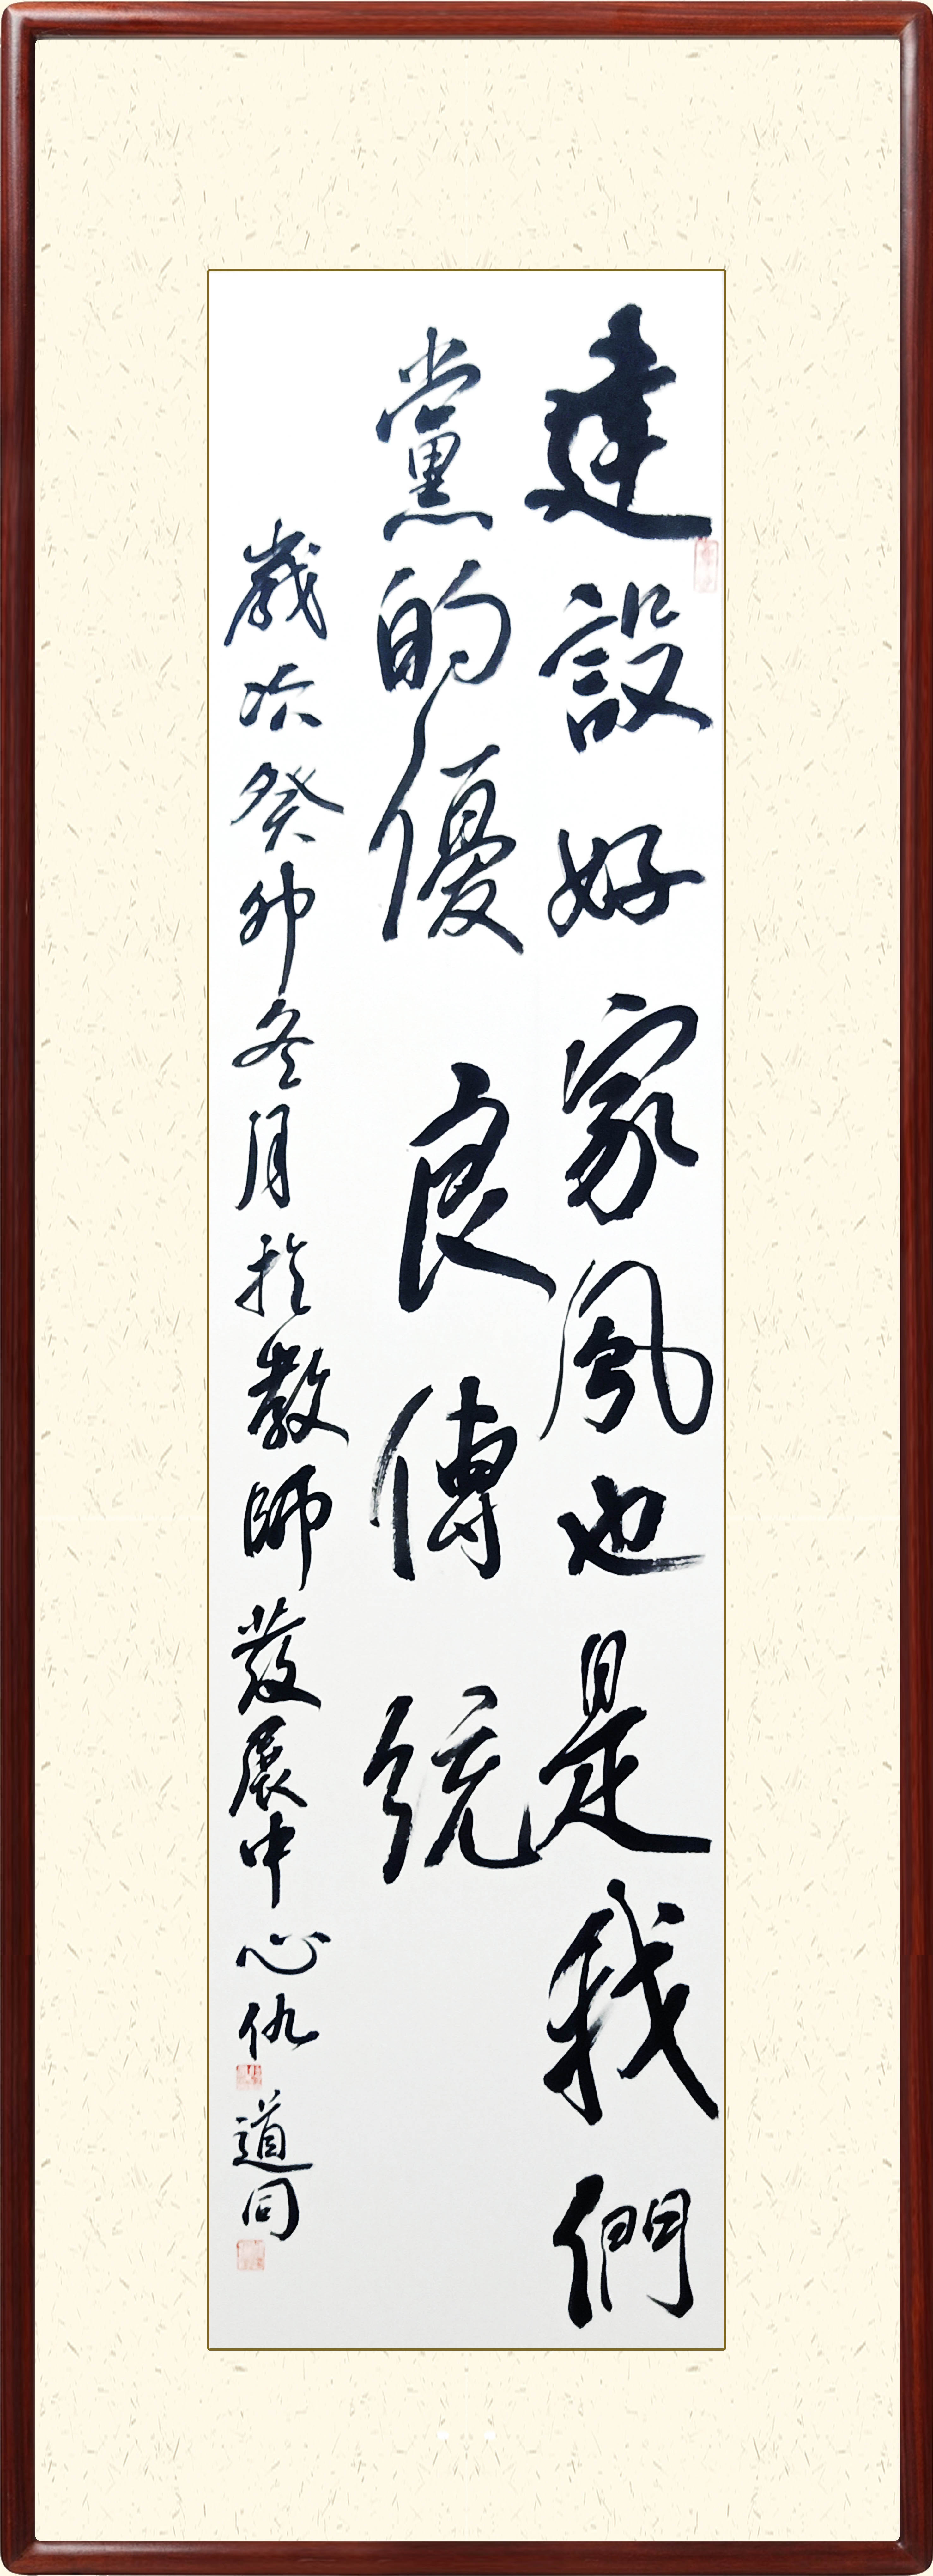 建設好家風也是我們
黨的優良傳統
歲次癸卯冬月於教師發展中心仇道同